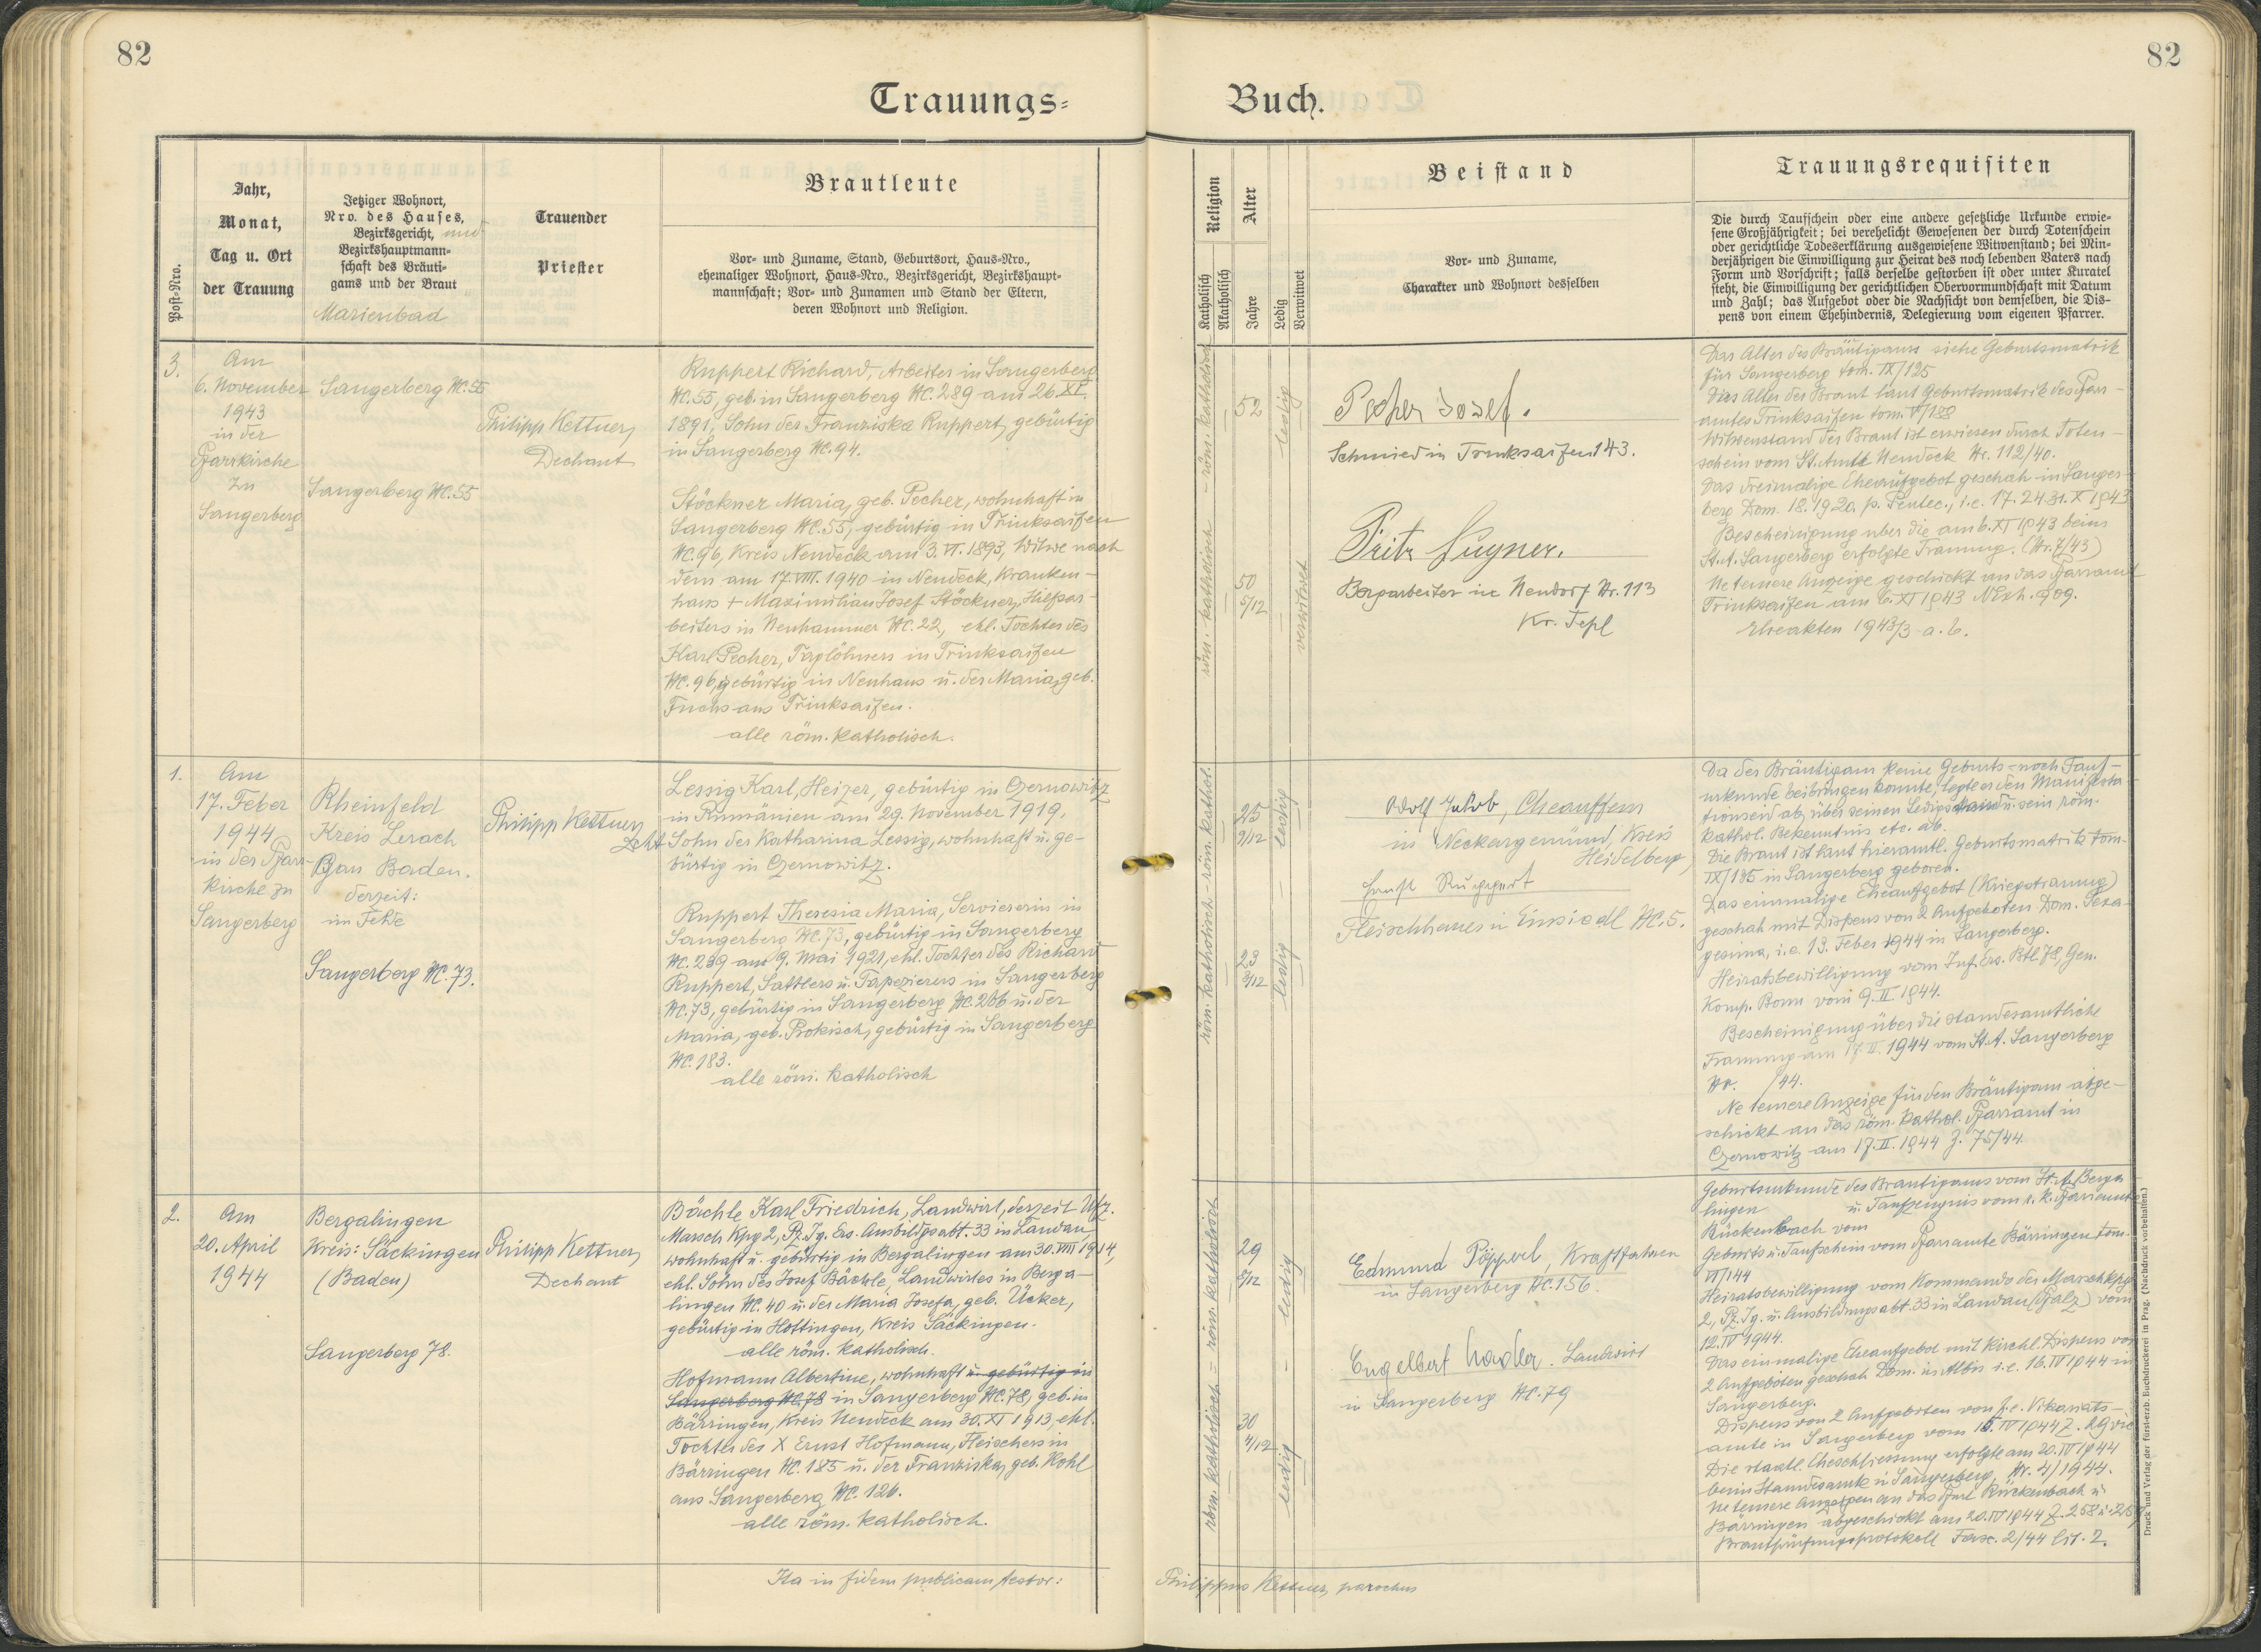 82
82
Trauungs=
Buch.
Post=Nro.
Jahr,
Monat,
Tag u. Ort
der Trauung
Jetziger Wohnort,
Nro. des Hauses,
Bezirksgericht, und
Bezirkshauptmann=
schaft des Bräuti=
gams und der Braut
Marienbad
Trauender
Priester
Brautleute
Vor= und Zuname, Stand, Geburtsort, Haus=Nro.,
ehemaliger Wohnort, Haus=Nro., Bezirksgericht, Bezirkshaupt=
mannschaft; Vor= und Zunamen und Stand der Eltern,
deren Wohnort und Religion.
Religion
Katholisch
Akatholisch
Alter
Jahre
Ledig
Verwitwet
Beistand
Vor= und Zuname,
Charakter und Wohnort desselben
Trauungsrequisiten
Die durch Taufschein oder eine andere gesetzliche Urkunde erwie=
sene Großjährigkeit; bei verehelicht Gewesenen der durch Totenschein
oder gerichtliche Todeserklärung ausgewiesene Witwenstand; bei Min=
derjährigen die Einwilligung zur Heirat des noch lebenden Vaters nach
Form und Vorschrift; falls derselbe gestorben ist oder unter Kuratel
steht, die Einwilligung der gerichtlichen Obervormundschaft mit Datum
und Zahl; das Aufgebot oder die Nachsicht von demselben, die Dis=
pens von einem Ehehindernis, Delegierung vom eigenen Pfarrer.
3.
Am
6. November
1943
in der
Pfarrkirche
zu
Sangerberg
Sangerberg NC. 55
Sangerberg NC. 55
Philipp Kettner,
Dechant
Ruppert Richard, Arbeiter in Sangerberg
NC. 55, geb. in Sangerberg NC. 289 am 26. XI.
1891, Sohn der Franziska Ruppert, gebürtig
in Sangerberg NC. 94.
Stöckner Maria, geb. Pecher, wohnhaft in
Sangerberg NC. 55, gebürtig in Trinksaifen
NC. 96, Kreis Neudeck am 3. VI. 1893, Witwe nach
dem am 17. VIII. 1940 in Neudeck, Kranken-
haus + Maximilian Josef Stöckner, Hilfsar-
beiters in Neuhammer NC. 22, ehl. Tochter des
Karl Pecher, Taglöhners in Trinksaifen
NC. 96, gebürtig in Neuhaus u. der Maria, geb.
Fuchs aus Trinksaifen.
alle röm. katholisch.
röm. katholisch - röm. katholisch
52
50
5/12
ledig
verwitwet
Pecher Josef.
Schmied in Trinksaifen 143.
Fritz
Bergarbeiter in Neudorf Nr. 113
Kr. Tepl
Das Alter des Bräutigams siehe Geburtsmatrik
für Sangerberg tom. IX/125
Das Alter der Braut laut Geburtsmatrik des Pfarr-
amtes Trinksaifen tom. V/188
Witwenstand der Braut ist erwiesen durch Toten-
schein vom St. Amt Neudeck Nr. 112/40.
Das dreimalige Eheaufgebot geschah in Sanger-
berg Dom. 18. 19. 20. p. Pentec., i. e. 17. 24. 31. X 1943
Bescheinigung über die am 6. XI 1943 beim
St. A. Sangerberg erfolgte Trauung. (Nr. 7/43)
Ne temere Anzeige geschickt an das Pfarramt
Trinksaifen am 6. XI 1943 NExh. 909.
Eheakten 1943/3 a. b.
1.
Am
17. Feber
1944
in der Pfarr-
kirche zu
Sangerberg
Rheinfeld
Kreis Lerach
Gau Baden.
derzeit:
im Felde
Sangerberg NC. 73.
Philipp Kettner,
Dcht
Lessig Karl, Heizer, gebürtig in Czernowitz
in Rumänien am 29. November 1919,
Sohn der Katharina Lessig, wohnhaft u. ge-
bürtig in Czernowitz.
Ruppert Theresia Maria, Serviererin in
Sangerberg NC. 73, gebürtig in Sangerberg
NC. 289 am 9. Mai 1921, ehl. Tochter des Richard
Ruppert, Sattlers u. Tapezierers in Sangerberg
NC. 73, gebürtig in Sangerberg NC. 266 u. der
Maria, geb. Prokisch, gebürtig in Sangerberg
NC. 183.
alle röm. katholisch
röm. katholisch - röm. kathol.
25
9/12
23
9/12
ledig
ledig
Adolf Jakob, Cheauffeur
in Neckargemünd, Kreis
Heidelberg
Ernst Ruppert
Fleischhauer in Einsiedl NC. 5.
Da der Bräutigam keine Geburts- noch Tauf-
urkunde beibringen konnte, legte er den Manifesta-
tionseid ab, über seinen Ledigstand u. sein röm.
kathol. Bekenntnis etc. ab.
Die Braut ist laut hieramtl. Geburtsmatrik tom.
IX/185 in Sangerberg geboren.
Das einmalige Eheaufgebot (Kriegstrauung)
geschah mit Dispens von 2 Aufgeboten Dom. Sexa-
gesima, i. e. 13. Feber 1944 in Sangerberg.
Heiratsbewilligung vom Inf. Ers. Btl. 78, Gen.
Komp. Bonn vom 9. II 1944.
Bescheinigung über die standesamtliche
Trauung am 17. II. 1944 vom St. A. Sangerberg
Nr. /44.
Ne temere Anzeige für den Bräutigam abge-
schickt an das röm. kathol. Pfarramt in
Czernowitz am 17. II. 1944 Z. 75/44.
2.
Am
20. April
1944
Bergalingen
Kreis: Säckingen
(Baden)
Sangerberg 78.
Philipp Kettner,
Dechant
Bächle Karl Friedrich, Landwirt, derzeit Uffz.
Marsch Kpg 2, Pz. Jg. Ers. Ausbildgsabt. 33 in Landau,
wohnhaft u. gebürtig in Bergalingen am 30. VIII 1914,
ehl. Sohn des Josef Bächle, Landwirtes in Berga-
lingen NC. 40 u. der Maria Josefa, geb. Ücker,
gebürtig in Hottingen, Kreis Säckingen.
alle röm. katholisch.
Hofmann Albertine, wohnhaft u. gebürtig in
Sangerberg NC. 78 in Sangerberg NC. 78, geb. in
Bärringen, Kreis Neudeck am 30. XI 1913, ehl.
Tochter des X Ernst Hofmann, Fleischers in
Bärringen NC. 185 u. der Franziska, geb. Kohl
aus Sangerberg NC. 126.
alle röm. katholisch.
röm. katholisch - röm. katholisch
29
8/12
30
4/12
ledig
ledig
Edmund Pöpperl, Kraftfahrer
in Sangerberg NC. 156.
Engelbert Hacker. Landwirt
in Sangerberg NC. 79
Geburtsurkunde des Bräutigams vom St. A. Berga
lingen u. Taufzeugnis vom r. k. Pfarramt
Rückenbach vom
Geburts u. Taufschein vom Pfarramte Bärringen tom.
VI/144
Heiratsbewilligung vom Kommando der Marschkpg
2, Pz. Jg. u. Ausbildungsabt. 33 in Landau (Pfalz) vom
12. IV 1944.
Das einmalige Eheaufgebot mit kirchl. Dispens von
2 Aufgeboten geschah Dom. in Albis i. e. 16. IV 1944 in
Sangerberg.
Dispens von 2 Aufgeboten von f. e. Vikariats-
amte in Sangerberg vom 15. IV 1944 Z. 29 vic
Die staatl. Eheschliessung erfolgte am 20. IV 1944
beim Standesamte in Sangerberg, Nr. 4/1944.
Ne temere Anzeigen an das Pfarl Rückenbach u.
Bärringen abgeschickt am 20. IV 1944 Z. 258 u. 257
Brautprüfungsprotokoll Fasc. 2/44 lit. Z.
Ita in fidem publicam testor:
Philippus Kettner, parochus
Druck und Verlag der fürst-erzb. Buchdruckerei in Prag. (Nachdruck vorbehalten.)